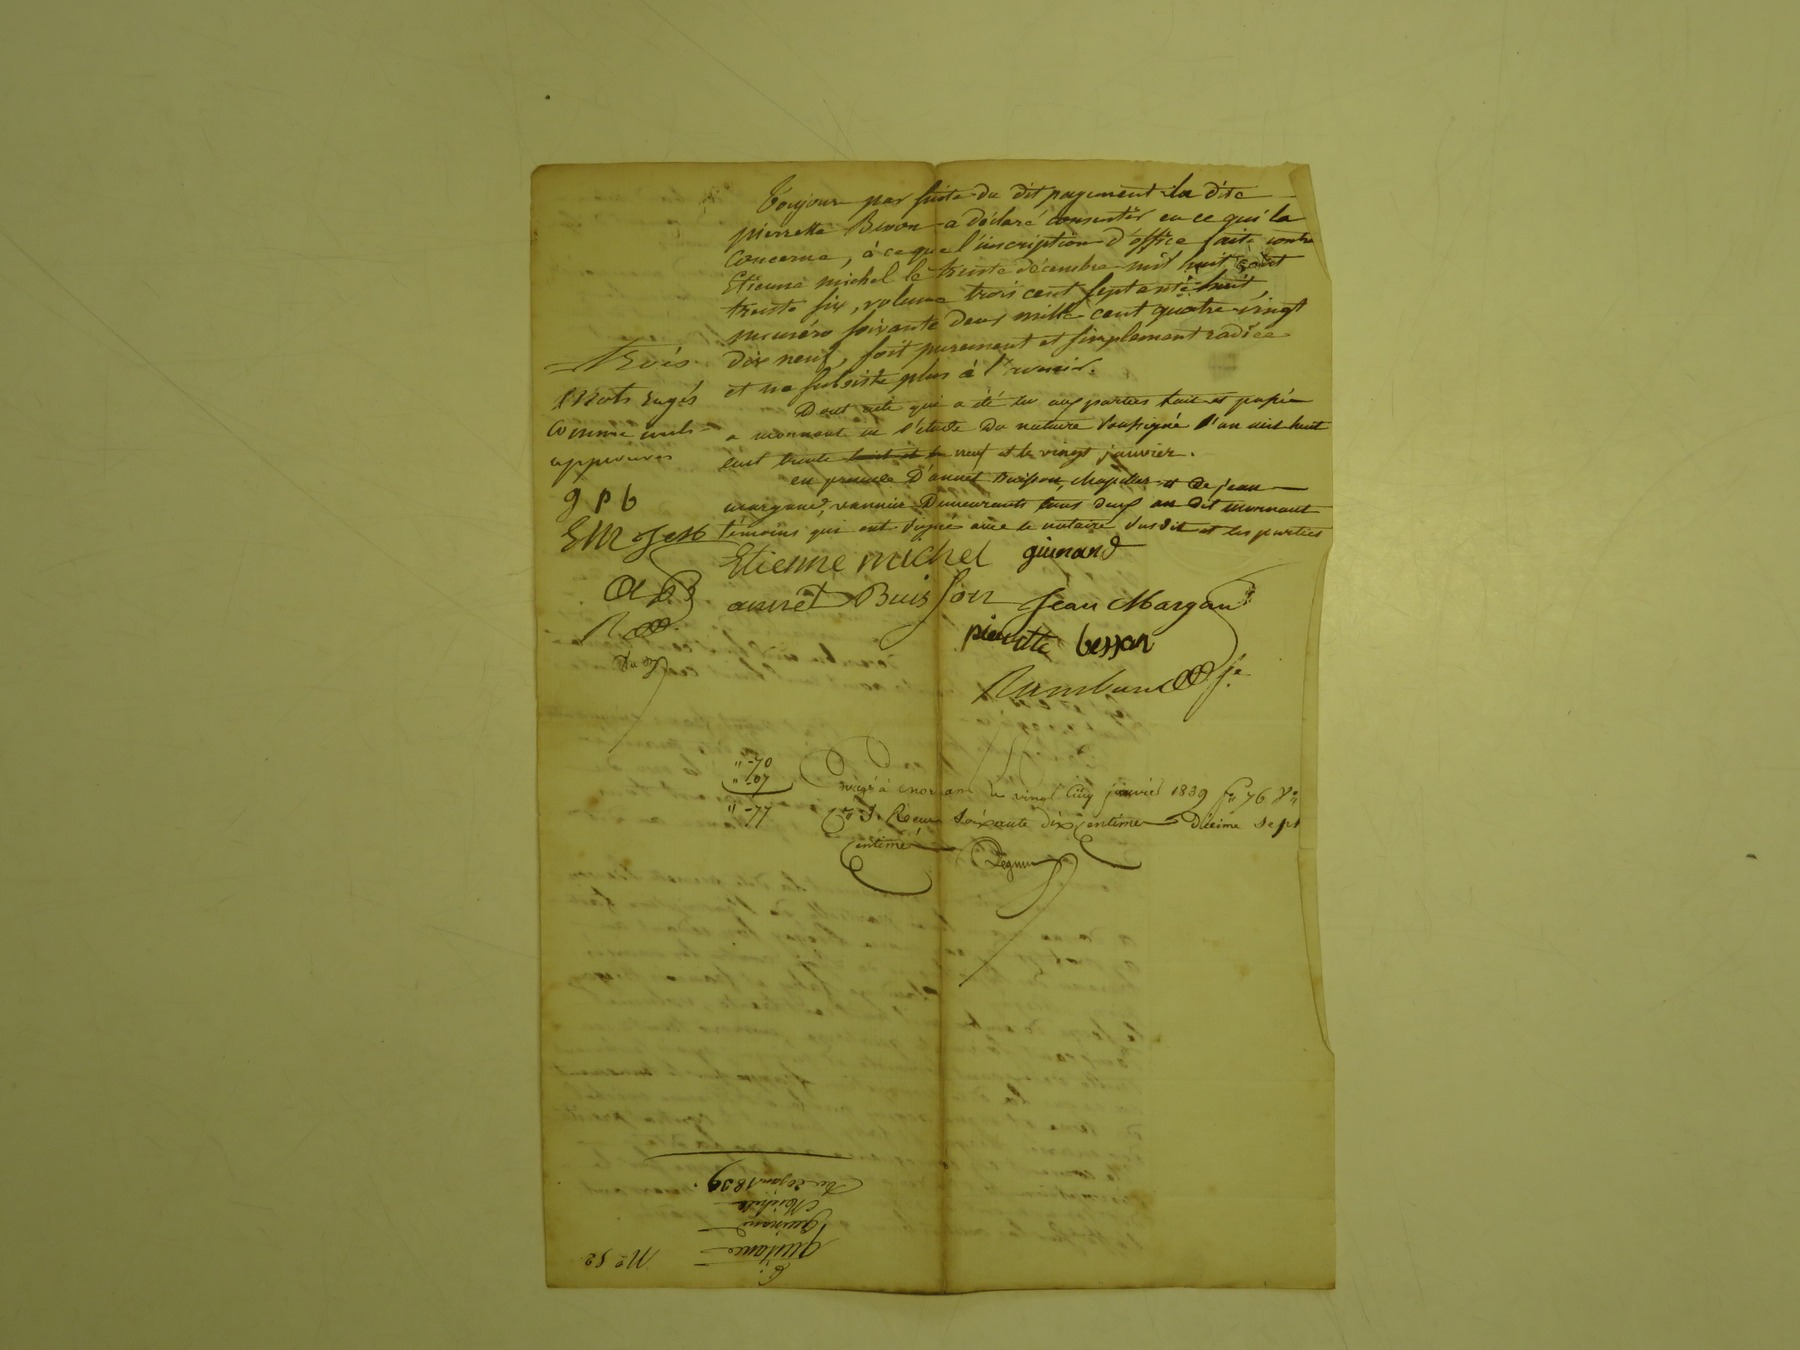 Toujours par suite du dit payement la dite
pierrette Besson a déclaré consentir en ce qui la
concerne, à ce que l'inscription d'office faite contre
Etienne michel le trente décembre mil huit cent
trente six, volume trois cent septante huit
numéro soixante deux mille cent quatre vingt
dix neuf, soit purement et simplement radiée
et ne subsiste plus à l'avenir.
Dont acte qui a été lu aux parties fait et passé
a mornant en l'étude du notaire soussigné l'an mil huit
cent trente huit et le neuf et le vingt janvier.
en présence d'annet Buisson, chapelier et de jean
margand, vannier demeurants tous deux au dit mornant
témoins qui ont signé avec le notaire susdit et les parties
trois
mots rayés
comme nuls
approuvés
g p b
EM
Etienne michel guinand
annet Buisson Jean Margand
pierrette besson
"-70
"-07
"-77
à mornant le vingt cinq janvier 1839 f° 76 V°
Reçu soixante dix centimes décime sept
centimes
quittance
guinand
Michel
du 20 janv 1839.
N° 52